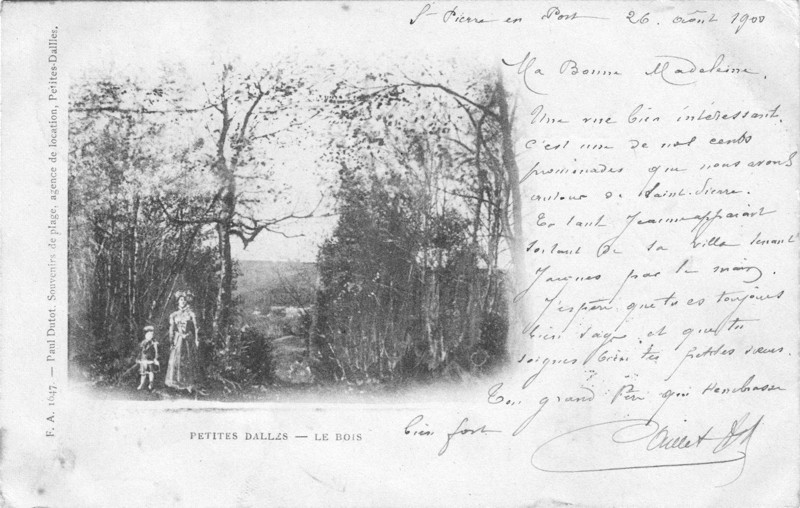 St Pierre en Port 26. Août 1900
Ma Bonne Madeleine.
Une vue bien intéressant.
c'est une de nos cents
promenades que nous avons
autour de Saint-Pierre.
Ta tante Jeanne apparait
sortant de sa villa tenant
Jacques par la main.
J'espère que tu es toujours
bien sage et que tu
soignes bien tes petites sœurs.
Ton grand Père qui t'embrasse
bien fort
PETITES DALLES — LE BOIS
F. A. 1647. — Paul Dutot, Souvenirs de plage, agence de location, Petites-Dalles.